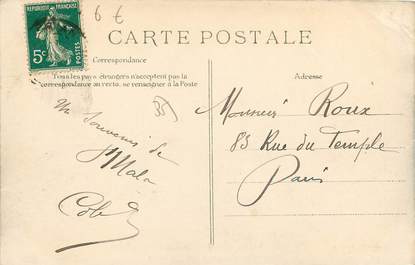 6 €
REPUBLIQUE FRANÇAISE
5c
POSTES
CARTE POSTALE
Correspondance
Tous les pays étrangers n'acceptent pas la
correspondance au recto, se renseigner à la Poste
Adresse
35
Un souvenir de
St Malo
Monsieur Roux
85 Rue du Temple
Paris